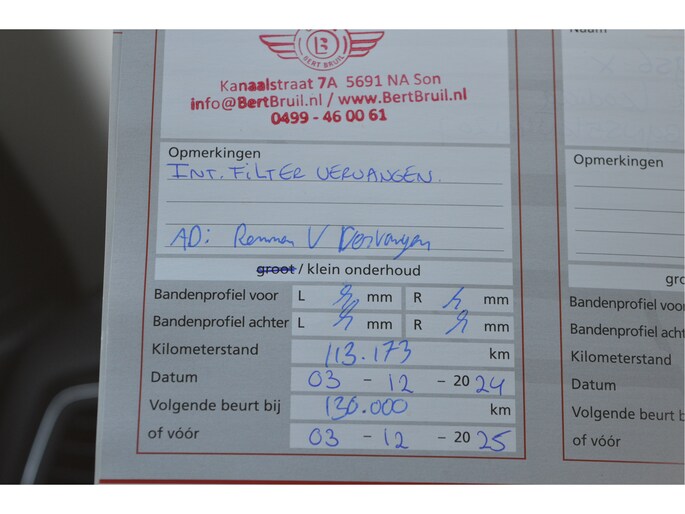 BERT BRUIL
Kanaalstraat 7A 5691 NA Son
info@BertBruil.nl / www.BertBruil.nl
0499 - 46 00 61
Opmerkingen
INT. FILTER VERVANGEN.
AD: Remmen V Vervangen
groot / klein onderhoud
Bandenprofiel voor L mm R mm
Bandenprofiel achter L mm R mm
Kilometerstand 113.173 km
Datum 03 - 12 - 2024
Volgende beurt bij 130.000 km
of vóór 03 - 12 - 2025
Naam
Opmerkingen
Bandenprofiel
Bandenprofiel
Kilometerstand
Datum
Volgende beurt
of vóór